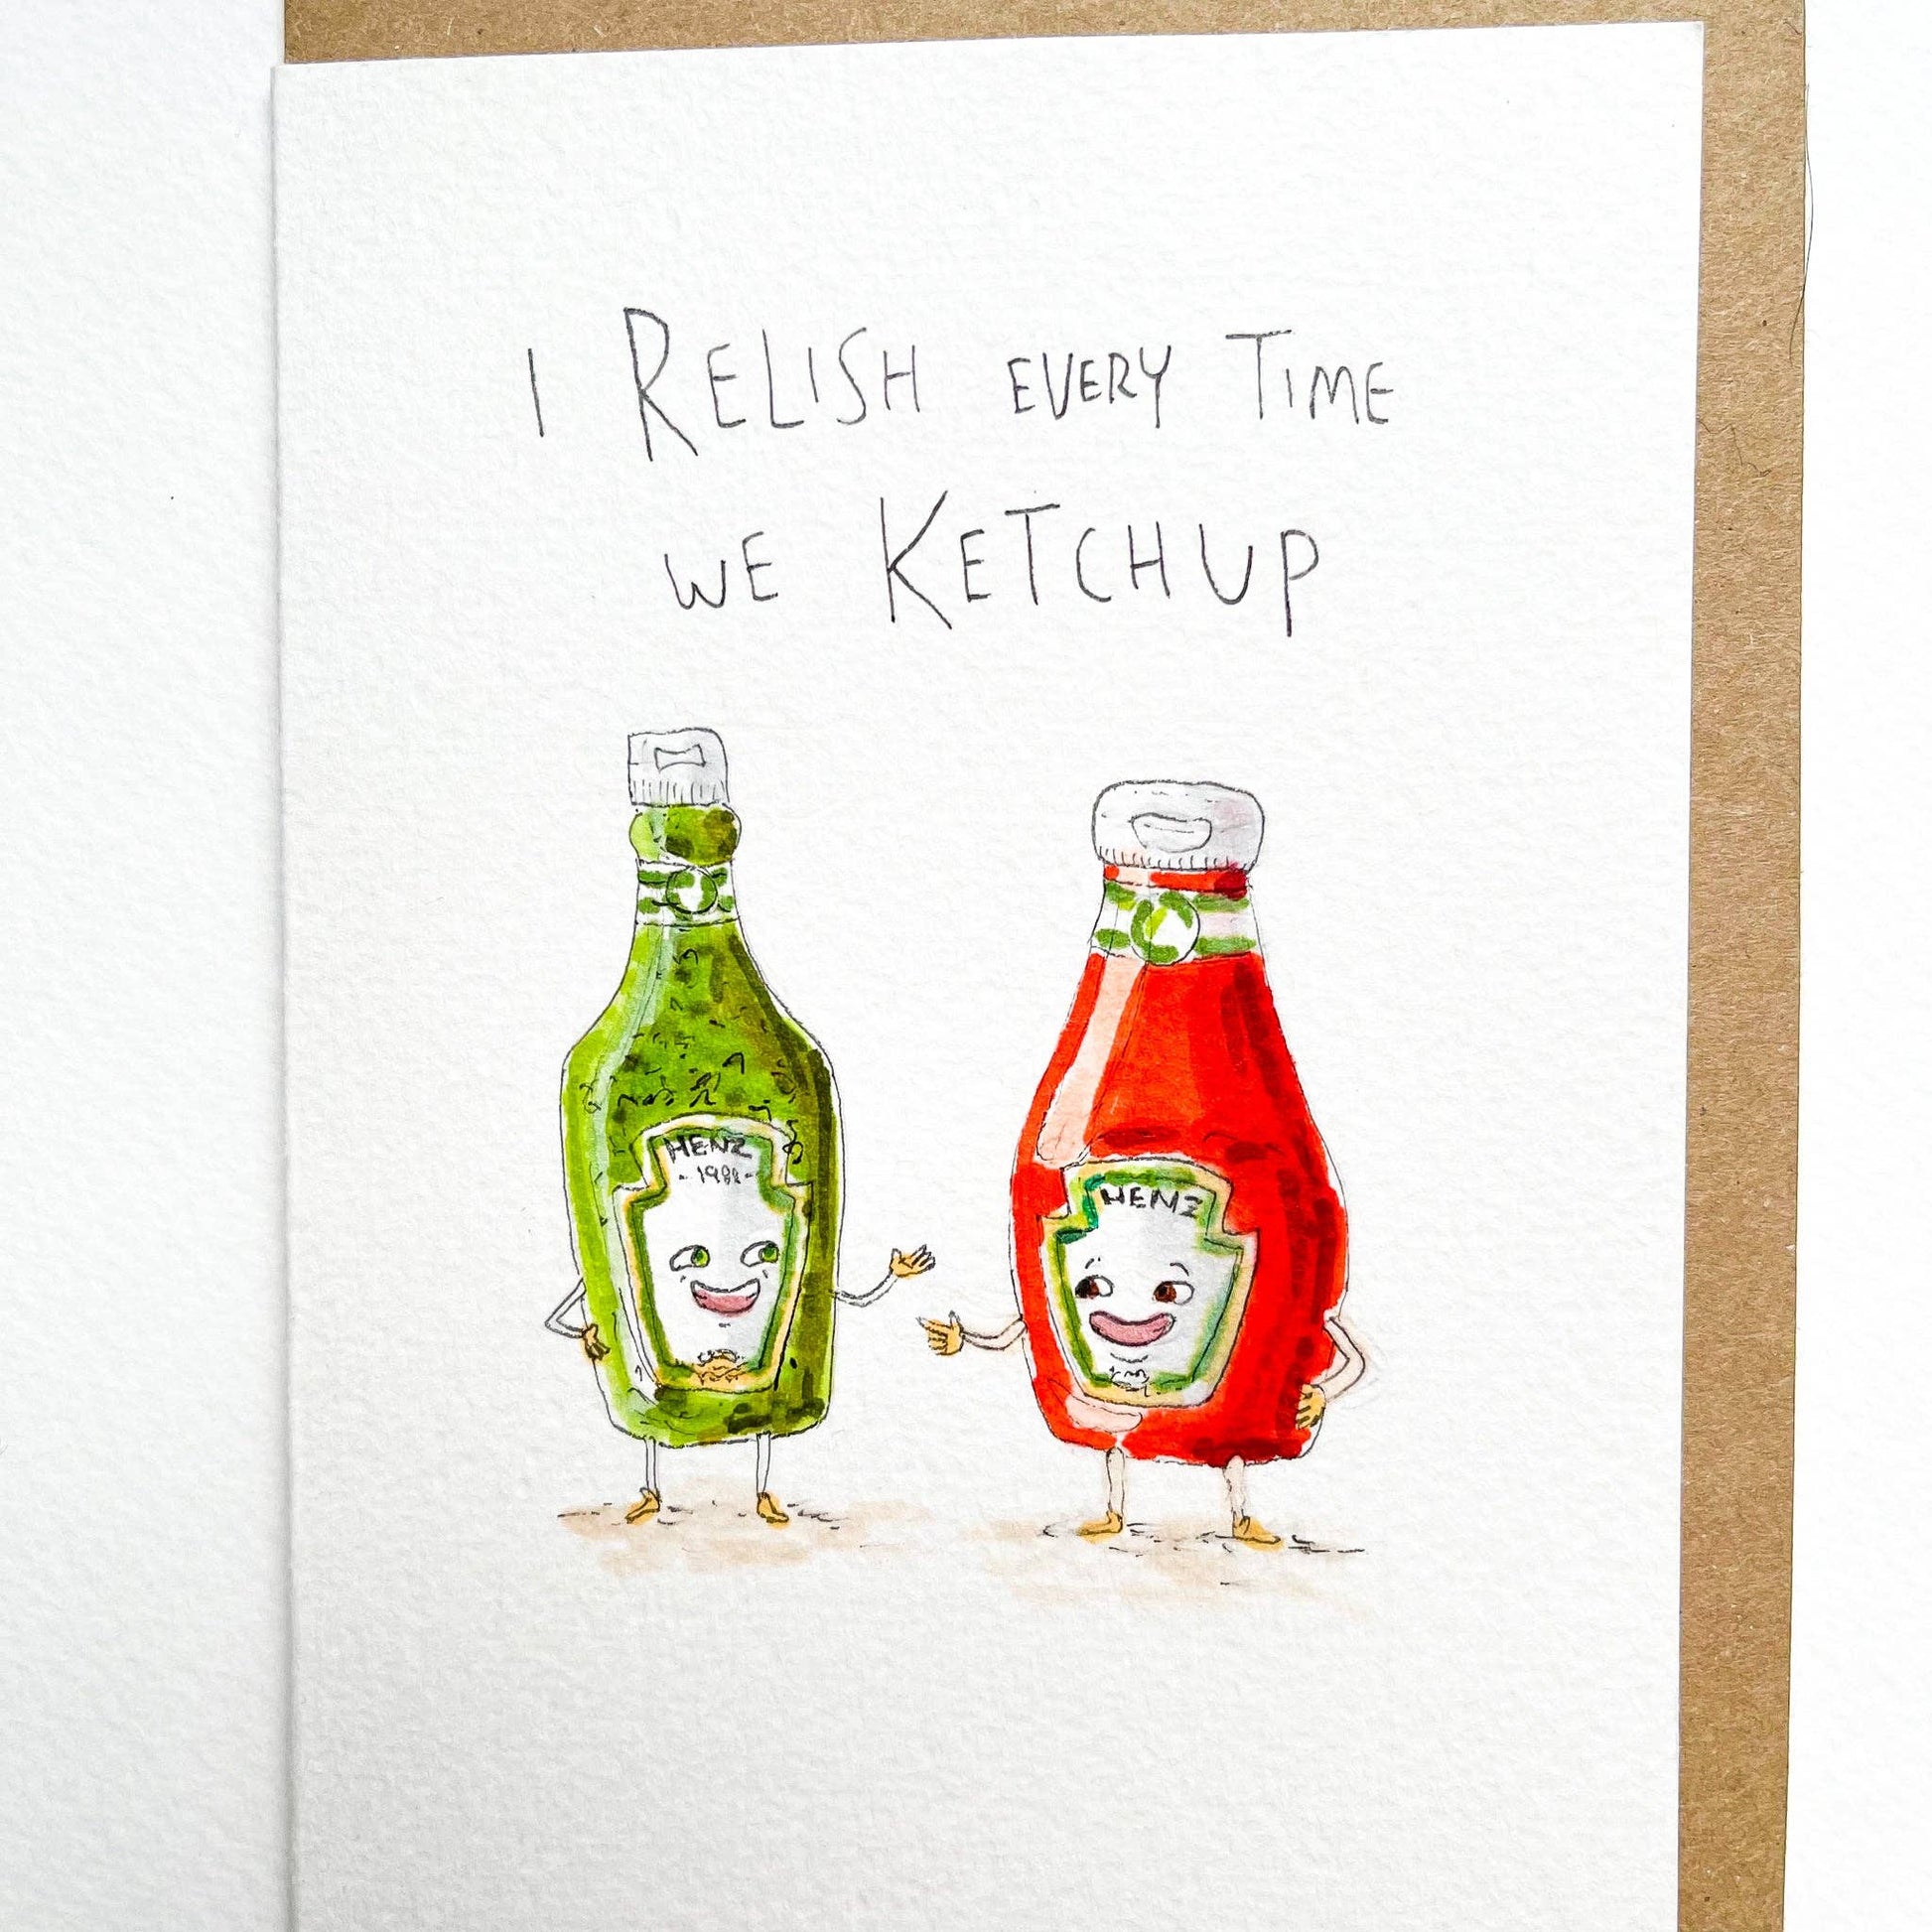 I RELISH EVERY TIME
WE KETCHUP
HENZ
HENZ